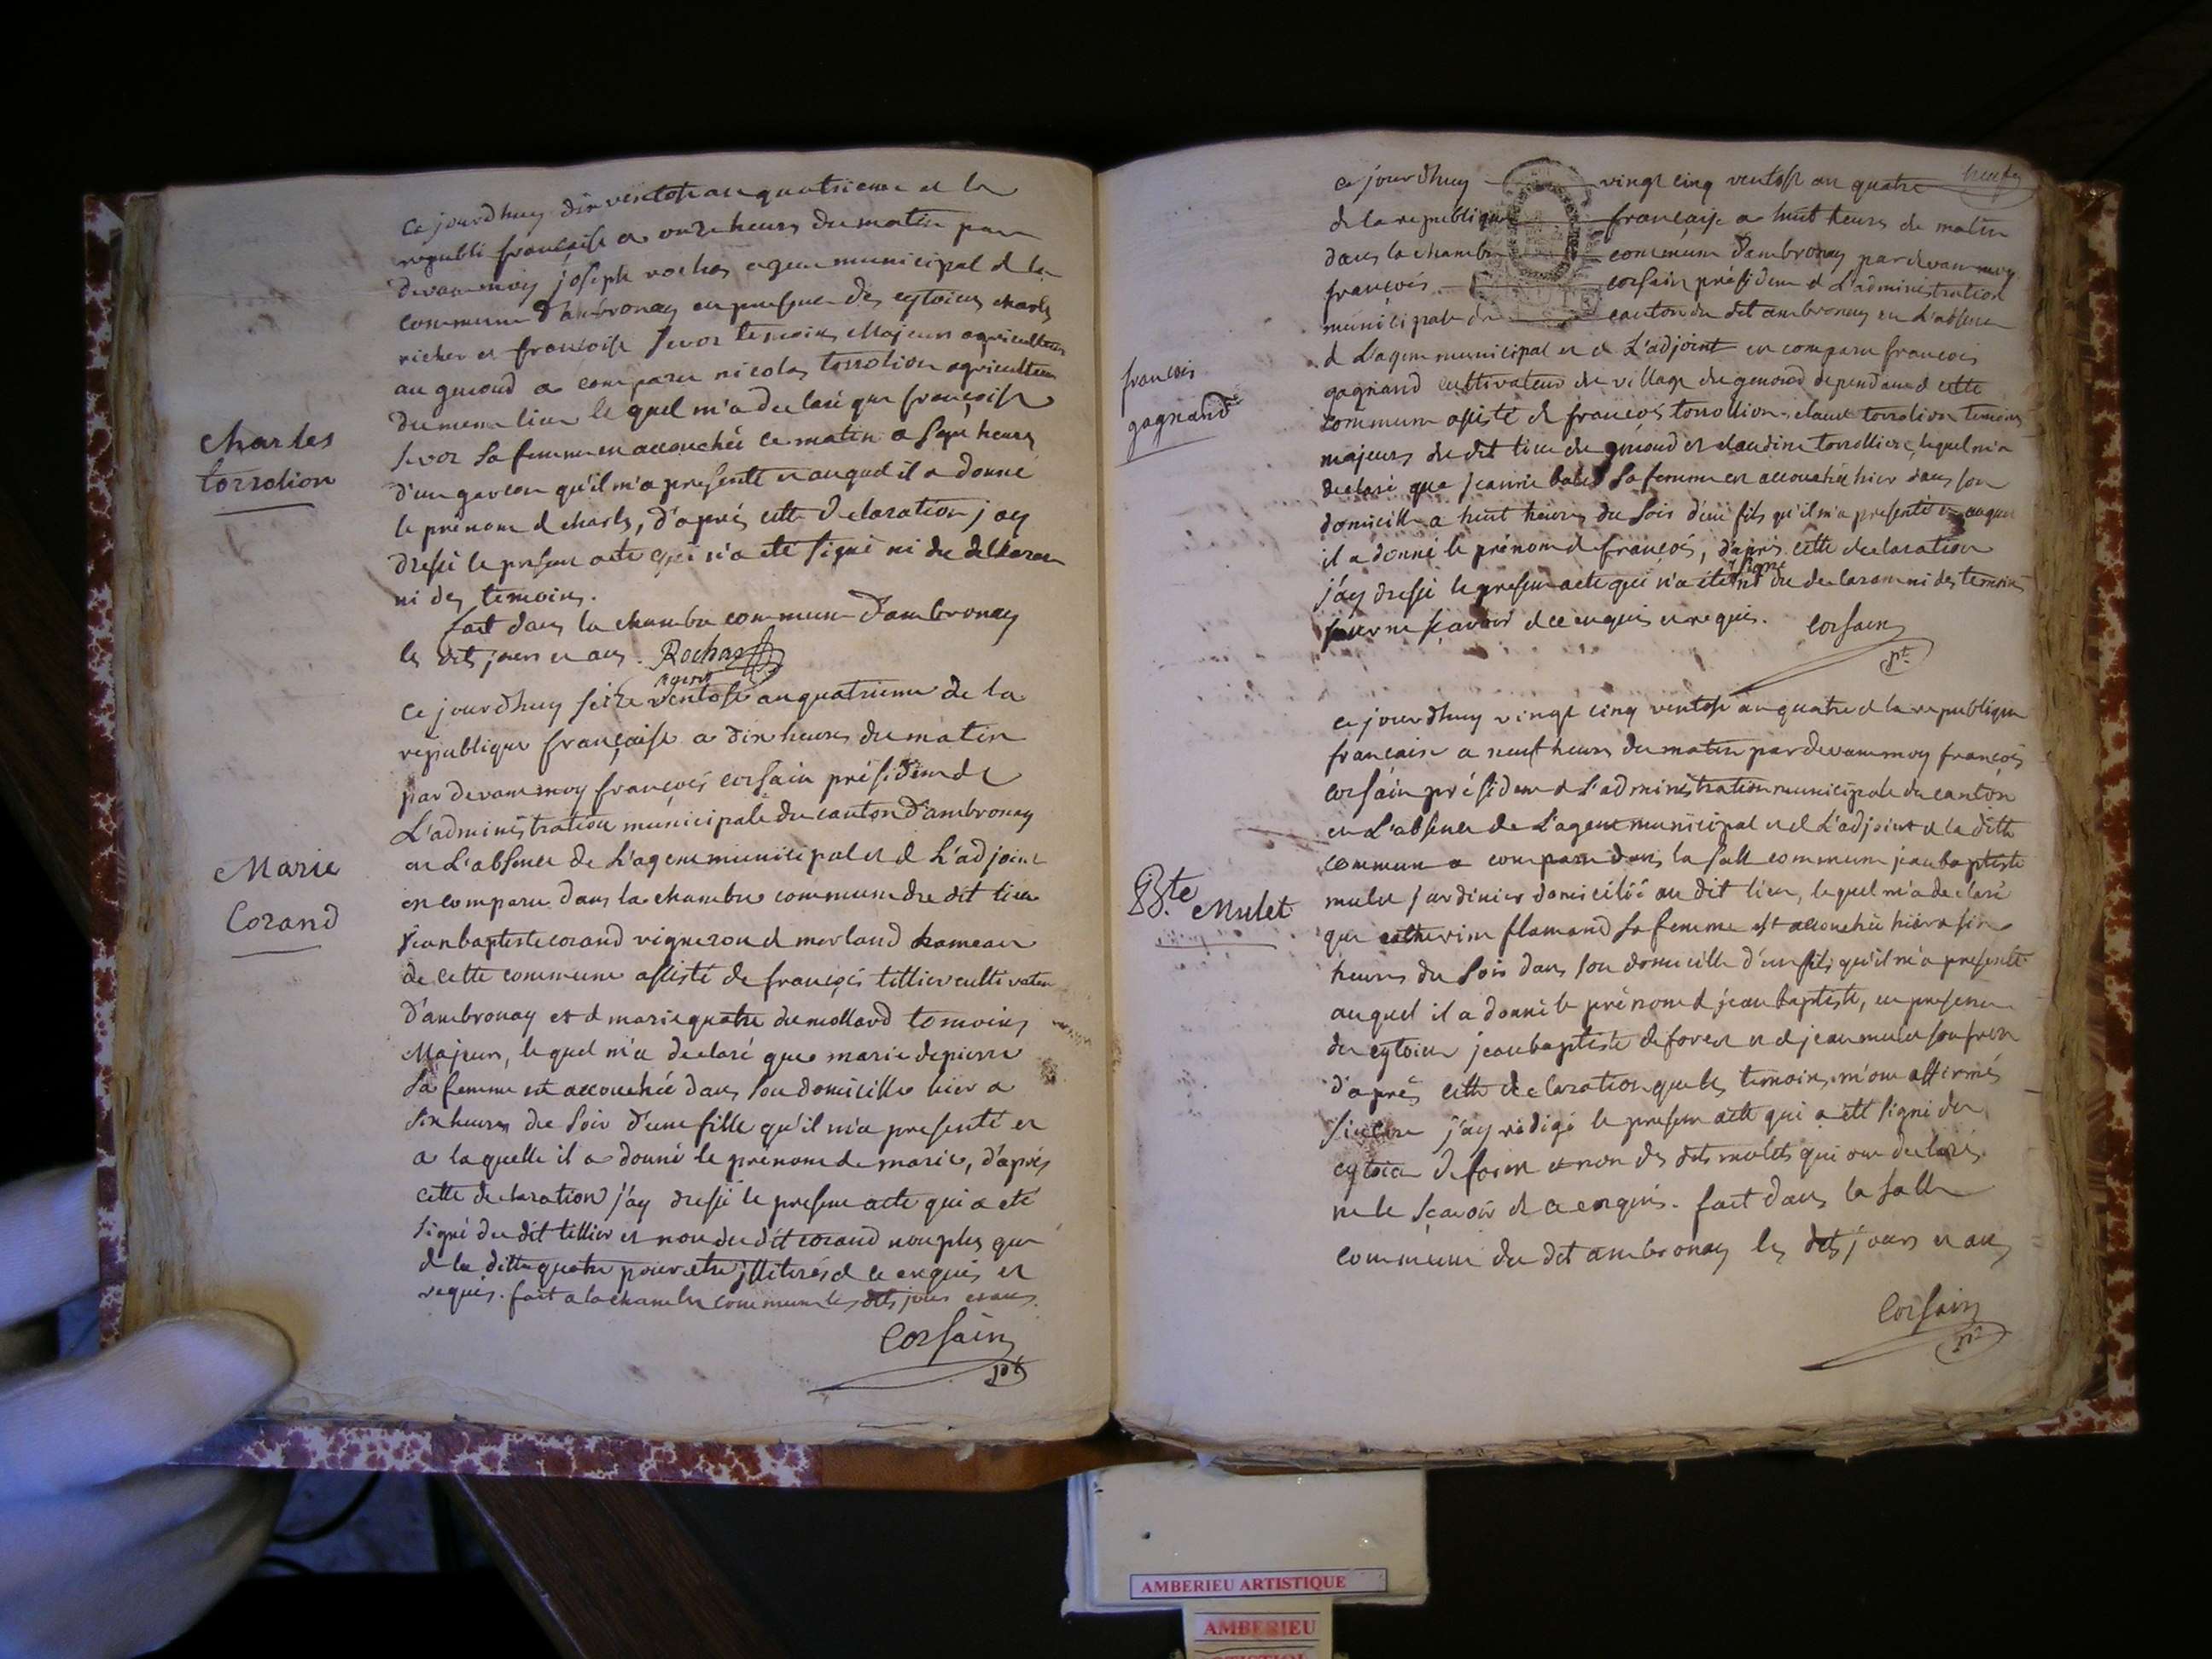 ce jourdhuy dix ventose an quatrieme de la
republi française a onze heures du matin par
devant moy joseph rochas agent municipal de la
commune d'ambronay en presence des cytoiens charles
richer et francoise temoins Majeurs agriculteurs
au genoud a comparu nicolas torrolion agriculteur
du meme lieu le quel m'a declaré que françoise
sa femme est accouchée ce matin a sept heures
d'un garcon qu'il m'a presenté et auquel il a donné
le prénom de charles, d'aprés cette declaration j'ay
dressé le present acte qui n'a eté signé ni du declarant
ni des temoins.
fait dans la chambre commune d'ambronay
les dits jours et ans. Rochas
agent
Charles
torrolion
ce jourdhuy seize ventose an quatrieme de la
republique française a dix heures du matin
par devant moy françois corsain président de
L'administration municipale du canton d'ambronay
en L'absence de L'agent municipal et de L'adjoint
est comparu dans la chambre commune du dit lieu
jean baptiste corand vigneron de merland hameau
de cette commune assisté de françois tillier cultivateur
d'ambronay et de marie quatre du mollard temoins
Majeurs, le quel m'a declaré que marie depierre
sa femme est accouchée dans son domicille hier a
six heures du soir d'une fille qu'il m'a presenté et
a laquelle il a donné le prénom de marie, d'aprés
cette declaration j'ay dressé le present acte qui a eté
signé du dit tillier et non du dit corand non plus que
de la ditte quatre pour etre illiteres de ce enquis et
requis. fait a la chambre commune les dits jours et ans
Corsain
pt
Marie
Corand
ce jourdhuy vingt cinq ventose an quatre
de la republique française a huit heures du matin
dans la chambre commune d'ambronay par devant moy
françois corsain président de L'administration
municipale du canton du dit ambronay en L'absence
de L'agent municipal et de L'adjoint est comparu francois
gagnand cultivateur du village du genoud dependant de cette
commune assisté de françois torrollion, claude torrolion temoins
majeurs du dit lieu du genoud et claudine torrolliere, lequel m'a
declaré que jeanne sa femme est accouchée hier dans son
domicille a huit heures du soir d'un fils qu'il m'a presenté et auquel
il a donné le prénom de françois, d'aprés cette declaration
j'ay dressé le present acte qui n'a eté signé ni du declarant ni des temoins
pour ne sçavoir de ce enquis et requis. Corsain
pt.
francois
gagnand
ce jourdhuy vingt cinq ventose an quatre de la republique
francaise a neuf heures du matin par devant moy françois
corsain président de L'administration municipale du canton
en L'absence de L'agent municipal et de L'adjoint de la ditte
commune a comparu dans la salle commune jean baptiste
mulet jardinier domicilié au dit lieu, lequel m'a declaré
que catherine flamand sa femme est accouchée hier a six
heures du soir dans son domicille d'un fils qu'il m'a presenté
auquel il a donné le prénom de jean baptiste, en presence
du cytoien jean baptiste deforest et de jean mulet son frere
d'aprés cette declaration que les temoins m'ont affirmés
sincere j'ay redigé le present acte qui a eté signé du
cytoien deforest et non des dits mulets qui ont declarés
ne le sçavoir de ce enquis. fait dans la salle
commune du dit ambronay les dits jours et ans
Corsain
pt
Bte Mulet
AMBERIEU ARTISTIQUE
AMBERIEU